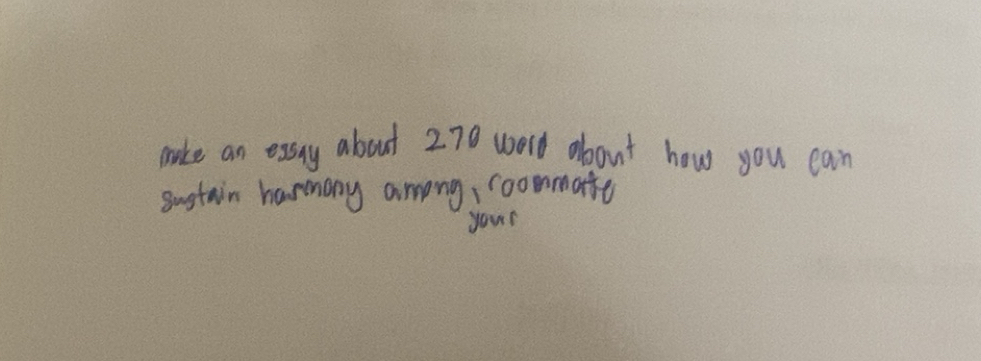 make an essay about 270 word about how you can
sustain harmony among, roommate
your